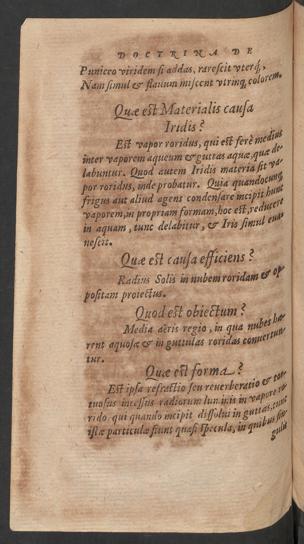 DOCTRINA DE
Puniceo viridem si addas, rarescit vterq́,
Nam simul & flauum miscent vtrinq̃ colorem.
Quæ est Materialis causa
Iridis?
Est vapor roridus, qui est ferè medius
inter vaporem aqueum & guttas aquæ, quæ de-
labuntur. Quod autem Iridis materia sit va-
por roridus, inde probatur. Quia quandocunq́,
frigus aut aliud agens condensare incipit hunc
vaporem, in propriam formam, hoc est, reducere
in aquam, tunc delabitur, & Iris simul eua-
nescit.
Quæ est causa efficiens?
Radius Solis in nubem roridam & op-
positam proiectus.
Quod est obiectum?
Media aëris regio, in qua nubes hæ-
rent aquosæ & in guttulas roridas conuertun-
tur.
Quæ est forma?
Est ipsa refractio seu reuerberatio & tor-
tuosus incessus radiorum luminis in vapore ro-
rido, qui quando incipit dissolui in guttas, tunc
istæ particulæ fiunt quasi specula, in quibus sin-
gulis